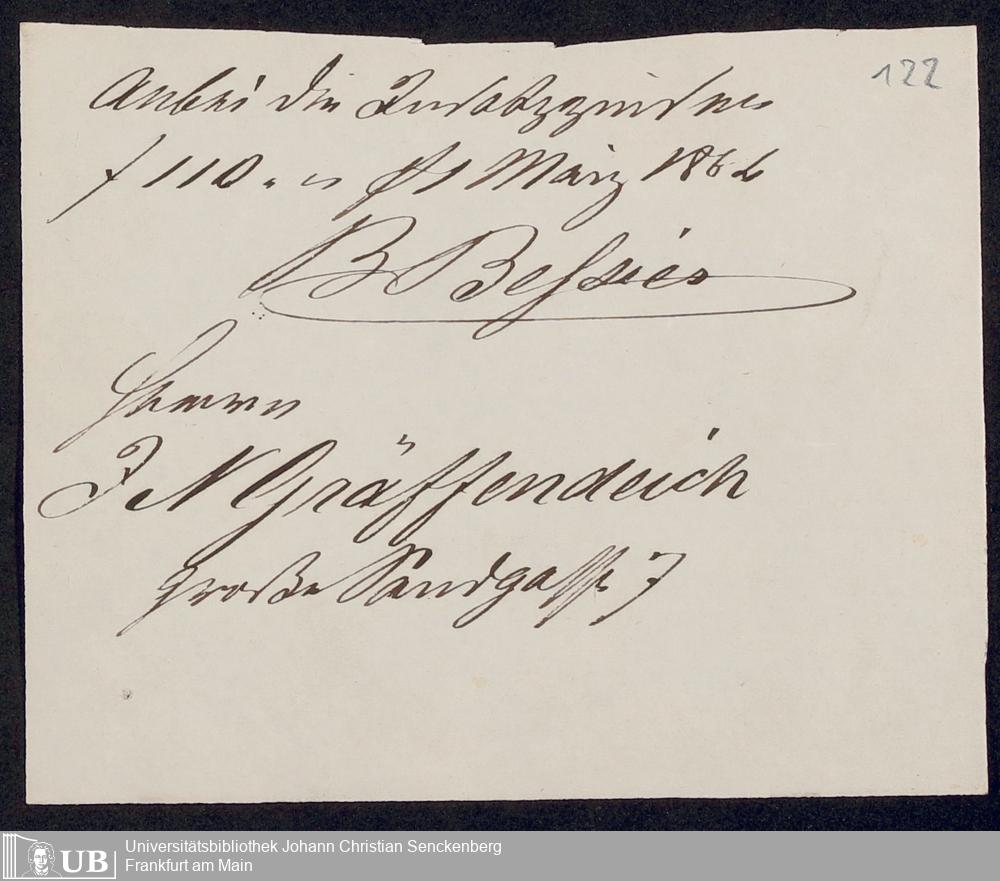 122
Anbei die Insatzzinsen
f 110.
1 März 186
B Bessiés
Herrn
J N Gräffendeich
große Sandgasse 7
UB
Universitätsbibliothek Johann Christian Senckenberg
Frankfurt am Main